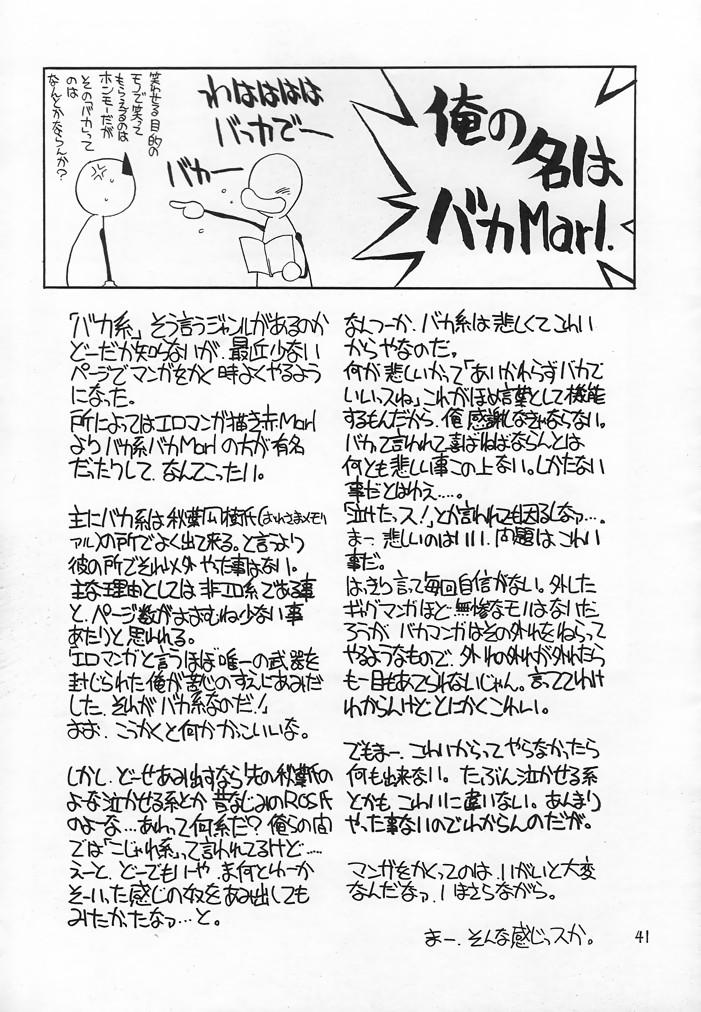 俺の
名は
バカMarl.
わはははは
バッカでー
バカー
笑わせる目的の
モノで笑って
もらえるのは
ホンモーだが
その「バカ」って
のは
なんとかならんか?
「バカ系」そう言うジャンルがあるのか
どーだか知らないが、最近少ない
ページでマンガをかく時よくやるよう
になった。
所によってはエロマンガ描き赤Marl
よりバカ系バカMarlの方が有名
だったりして、なんてこったい。
主にバカ系は秋葉凪樹氏(おれさまメモリ
アル)の所でよく出て来る。と言うより
彼の所でそれ以外やった事はない。
主な理由としては非エロ系である事
と、ページ数がおおむね少ない事
あたりと思われる。
「エロマンガと言うほぼ唯一の武器を
封じられた俺が苦心のすえにあみだ
した、それがバカ系なのだ!」
おお、こうかくと何かかっこいいな。
しかし、どーせあみ出すなら先の秋葉氏の
よーな泣かせる系とか昔なじみのROS氏
のよーな…あれって何系だ?俺らの間
では「こじゃれ系」って言われてるけど……
えーと、どーでもいいや、ま何とゆーか
そーいった感じの奴をあみ出しても
みたかったなァ…と。
なんつーか、バカ系は悲しくてこわい
からやなのだ。
何が悲しいかって「あいかわらずバカで
いいっスね」これがほめ言葉として機能
するもんだから、俺感謝しなきゃならない。
バカって言われて喜ばねばならんとは
何とも悲しい事この上ない。しかたない
事だとはわえ……。
「泣けたっス!」とか言われても困るしなァ…。
まー、悲しいのはいい、問題はこわい
事だ。
はっきり言って毎回自信がない。外した
ギャグマンガほど無惨なモノはないだ
ろうが、バカマンガはその外れをねらって
やるようなもので、外れの外れが外れたら
も一目もあてられないじゃん。言っててわけ
わからんけどとにかくこわい。
でもまー、こわいからってやらなかったら
何も出来ない。たぶん泣かせる系
とかも、こわいに違いない。あんまり
やった事ないのでわからんのだが。
マンガをかくってのは、いがいと大変
なんだなァ、いまさらながら。
まー、そんな感じっスか。
41